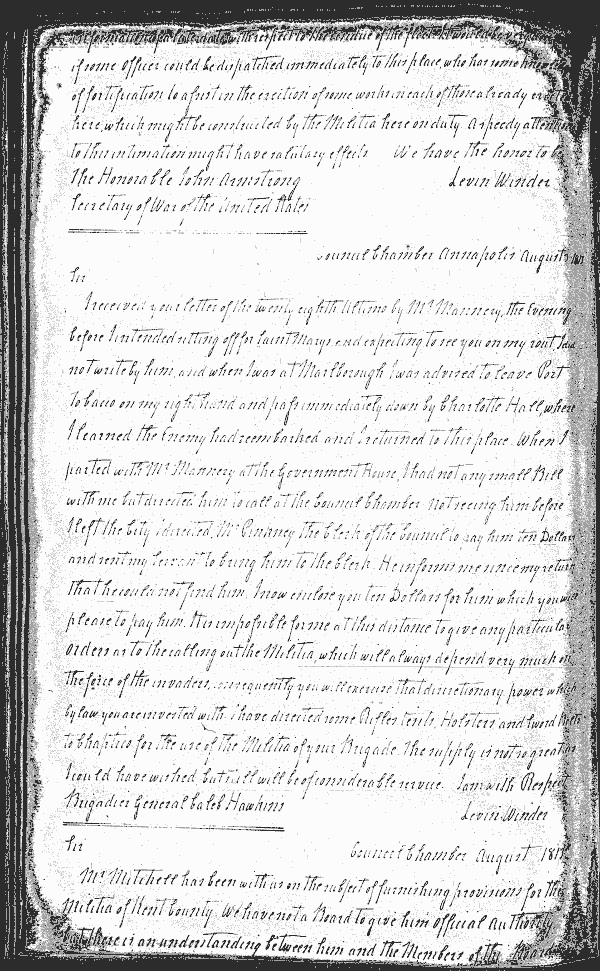 information of a late date with respect to the conduct of the fleet it would be very
if some officer could be dispatched immediately to this place, who has some knowledge
of fortification to assist in the erection of some works in each of those already erect
here, which might be constructed by the Militia here on duty. A speedy attention
to this intimation might have salutary effects We have the honor to be
The Honorable John Armstrong Levin Winder
Secretary of War of the United States
Council Chamber Annapolis August
Sir
I received your letter of the twenty eighth Ultimo by Mr Mannery, the Evening
before I intended setting off for Saint Marys and expecting to see you on my rout I did
not write by him, and when I was at Marlborough I was advised to leave Port
tobacco on my right hand and pass immediately down by Charlotte Hall, where
I learned the Enemy had reembarked and I returned to this place. When I
parted with Mr Mannery at the Government House, I had not any small Bill
with me but directed him to call at the Council Chamber not seeing him before
I left the City I directed, Mr Pinkney the Clerk of the Council to pay him ten Dollars
and sent my servant to bring him to the Clerk. He informs me since my return
that he could not find him. I now enclose you ten Dollars for him which you will
please to pay him. It is impossible for me at this distance to give any particular
orders as to the calling out the Militia, which will always depend very much on
the force of the invaders, consequently you will exercise that discretionary power which
by law you are invested with. I have directed some Rifles tents, Holsters and sword Belts
to Chaptico for the use of the Militia of your Brigade. The supply is not so great as
I could have wished but still will be of considerable service. I am with Respect
Brigadier General Caleb Hawkins Levin Winder
Council Chamber August 181
Sir
Mr Mitchell has been with us on the subject of furnishing provisions for the
Militia of Kent County. We have not a Board to give him official Authority
but there is an understanding between him and the Members of the Board